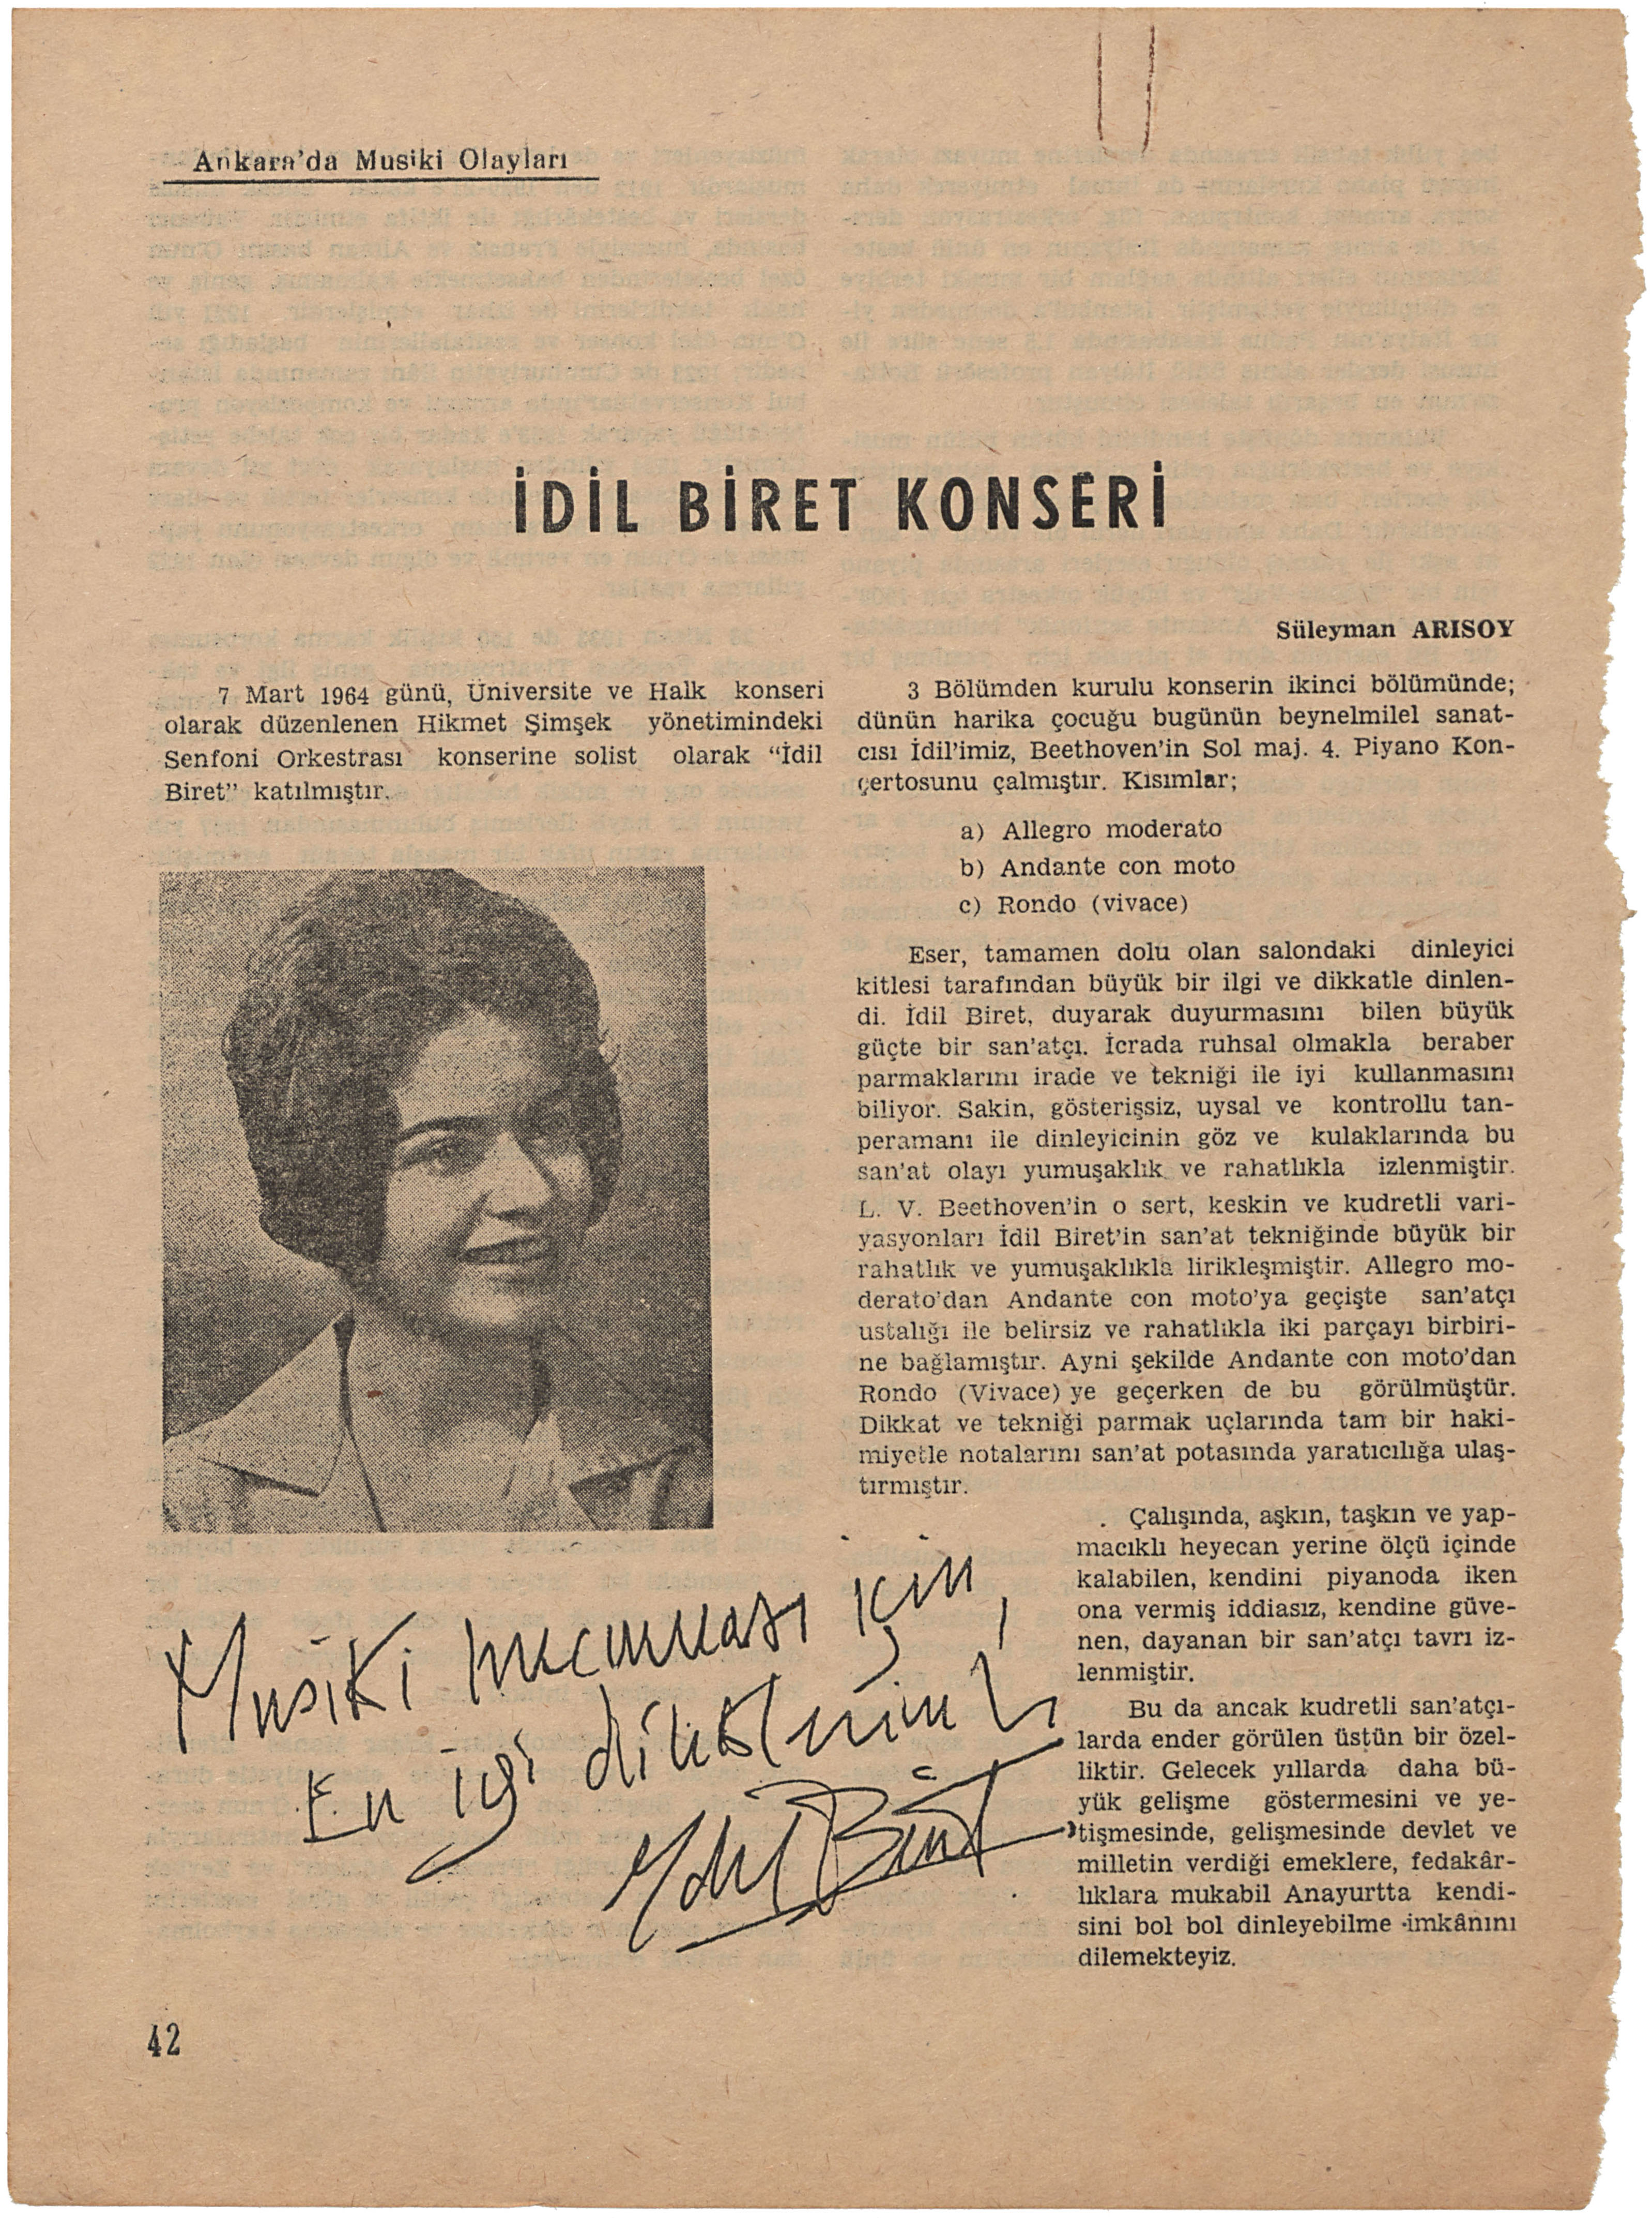 Ankara'da Musiki Olayları
İDİL BİRET KONSERİ
Süleyman ARISOY
7 Mart 1964 günü, Üniversite ve Halk konseri
olarak düzenlenen Hikmet Şimşek yönetimindeki
Senfoni Orkestrası konserine solist olarak “İdil
Biret” katılmıştır.
Musiki mecmuası için,
En iyi dileklerimle
İdil Biret
3 Bölümden kurulu konserin ikinci bölümünde;
dünün harika çocuğu bugünün beynelmilel sanat-
cısı İdil'imiz, Beethoven'in Sol maj. 4. Piyano Kon-
çertosunu çalmıştır. Kısımlar;
a) Allegro moderato
b) Andante con moto
c) Rondo (vivace)
Eser, tamamen dolu olan salondaki dinleyici
kitlesi tarafından büyük bir ilgi ve dikkatle dinlen-
di. İdil Biret, duyarak duyurmasını bilen büyük
güçte bir san'atçı. İcrada ruhsal olmakla beraber
parmaklarını irade ve tekniği ile iyi kullanmasını
biliyor. Sakin, gösterişsiz, uysal ve kontrollu tan-
peramanı ile dinleyicinin göz ve kulaklarında bu
san'at olayı yumuşaklık ve rahatlıkla izlenmiştir.
L. V. Beethoven'in o sert, keskin ve kudretli vari-
yasyonları İdil Biret'in san'at tekniğinde büyük bir
rahatlık ve yumuşaklıkla lirikleşmiştir. Allegro mo-
derato'dan Andante con moto'ya geçişte san'atçı
ustalığı ile belirsiz ve rahatlıkla iki parçayı birbiri-
ne bağlamıştır. Ayni şekilde Andante con moto'dan
Rondo (Vivace) ye geçerken de bu görülmüştür.
Dikkat ve tekniği parmak uçlarında tam bir haki-
miyetle notalarını san'at potasında yaratıcılığa ulaş-
tırmıştır.
Çalışında, aşkın, taşkın ve yap-
macıklı heyecan yerine ölçü içinde
kalabilen, kendini piyanoda iken
ona vermiş iddiasız, kendine güve-
nen, dayanan bir san'atçı tavrı iz-
lenmiştir.
Bu da ancak kudretli san'atçı-
larda ender görülen üstün bir özel-
liktir. Gelecek yıllarda daha bü-
yük gelişme göstermesini ve ye-
tişmesinde, gelişmesinde devlet ve
milletin verdiği emeklere, fedakâr-
lıklara mukabil Anayurtta kendi-
sini bol bol dinleyebilme imkânını
dilemekteyiz.
42